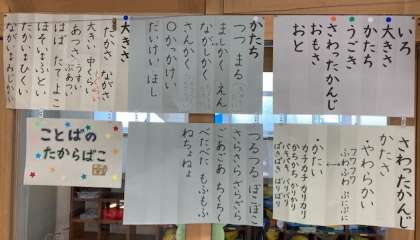 いろ
大きさ
かたち
うごき
さわったかんじ
おもさ
おと
かたち
つつ まる
ましかく えん
ながしかく
さんかく
〇かっかけい
だいけい ほし
大きさ
たかさ ながさ
大きい 中くらい
あつさ うすい
はば たて よこ
ほそい ふとい
たかい ひくい
ながい みじかい
さわったかんじ
かたさ
・やわらかい
フワフワ
ふわふわ ぷにぷに
・かたい
カチカチ カリカリ
かちかち かりかり
つるつる ぼこぼこ
さらさら ざらざら
ごあごあ ちくちく
べたべた もふもふ
ねちょねちょ
ことばの
たからばこ